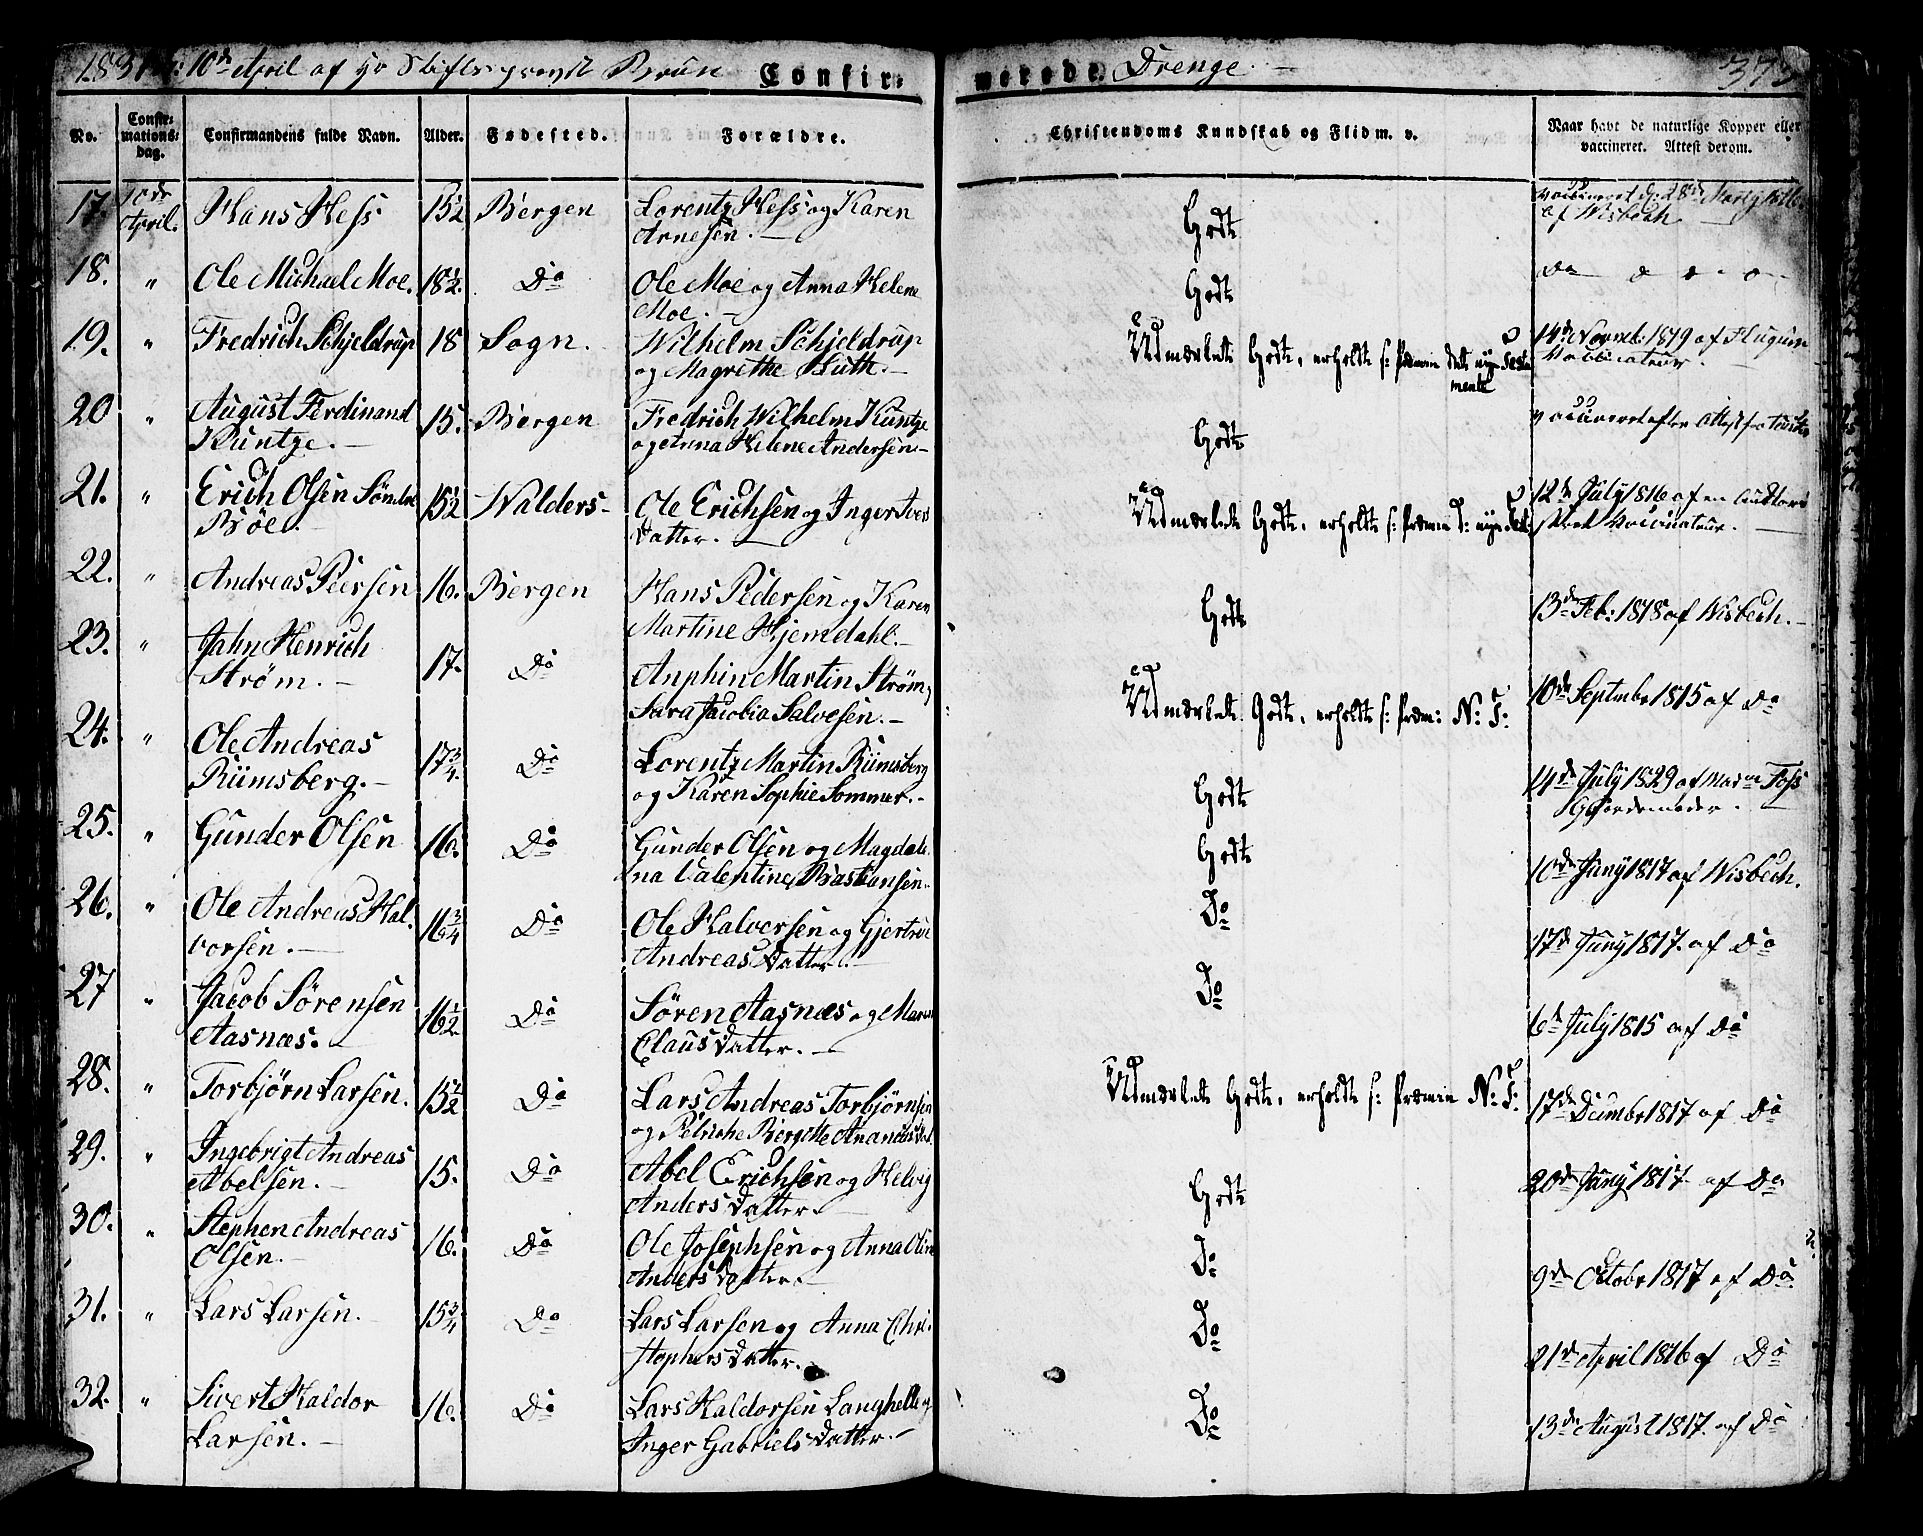 1831 d: 10de April af Hr Stiftsprovst Brun Confir-
merede Drenge.
No. Confir-mations-dag. Confirmandens fulde Navn. Alder. Fødested. Forældre. Christendoms Kundskab og Flid m. v. Naar havt de naturlige Kopper eller vaccineret. Attest derom.
17. 10de April. Hans Hess 15½ Bergen Lorentz Hess og Karen Godt vaccineret d: 28de
Arnesen. af Wisbech
18. " Ole Michael Moe. 18½. Do Ole Moe og Anna Helene Godt Do
Moe.
19. " Fredrich Schjeldrup 18 Sogn. Wilhelm Schjeldrup Udmærket Godt, erholdt s: Præmie det nye Testa 14de Novmb: 1819 af
og Magrethe Luth. mente Vaccinateur.
20 " August Ferdinand 15. Bergen Fredrich Wilhelm Kuntze Godt vaccineret efter Attest fra
Kuntze. og Anna Helene Andersen
21. " Erich Olsen Söndre 15½ Walders Ole Erichsen og Inger Ivers Udmærket Godt, erholdt s: Præmie d: nye Test: 12de July 1816 af en
Böe. Datter. Vaccinateur.
22. " Andreas Peersen 16. Bergen Hans Pedersen og Karen Godt 13de Feb: 1818 af Wisbech.
Martine Hjemdahl.
23. " Jahn Henrich 17. Do Anphin Martin Strøm, Udmærket Godt, erholdt s: Præm: N: T: 10de Septmbr 1815 af Do
Strøm. Sara Jacobia Salvesen.
24. " Ole Andreas 17¾. Do Lorentz Martin Rumsberg Godt 14de July 1829 af Madme
Rumsberg. og Karen Sophie Sommer. Gjordemoder.
25. " Gunder Olsen 16. Do Gunder Olsen og Magdale- Godt 10de Juny 1817 af Wisbech.
na Valentine Bastiansen
26. " Ole Andreas Hal- 16¾ Do Ole Halversen og Gjertrue Do 17de Juny 1817. af Do
vorsen. Andreas Datter.
27 " Jacob Sörensen 16½. Do Sören Aasnæs og Maren Do 6de July 1815 af Do
Aasnæs. Claus Datter.
28. " Torbjörn Larsen. 15½ Do Lars Andreas Torbjörnsen Udmærket Godt, erholdt s: Præmie N: T: 17de Decembr 1817 af Do
og Petriche Bergitte
29. " Ingebrigt Andreas 15. Do Abel Erichsen og Helvig Godt 20de Juny 1817 af Do
Abelsen. Anders Datter.
30. " Stephen Andreas 16. Do Ole Josephsen og Anna Oline Do 9de Octobr 1817 af Do
Olsen. Anders Datter.
31. " Lars Larsen. 15¾ Do Lars Larsen og Anna Chri- Do 21de April 1816 af Do
stophers Datter.
32. " Sivert Haldor 16. Do Lars Haldorsen Langhelle og Do 13de August 1817. af Do
Larsen. Inger Gabriels Datter.